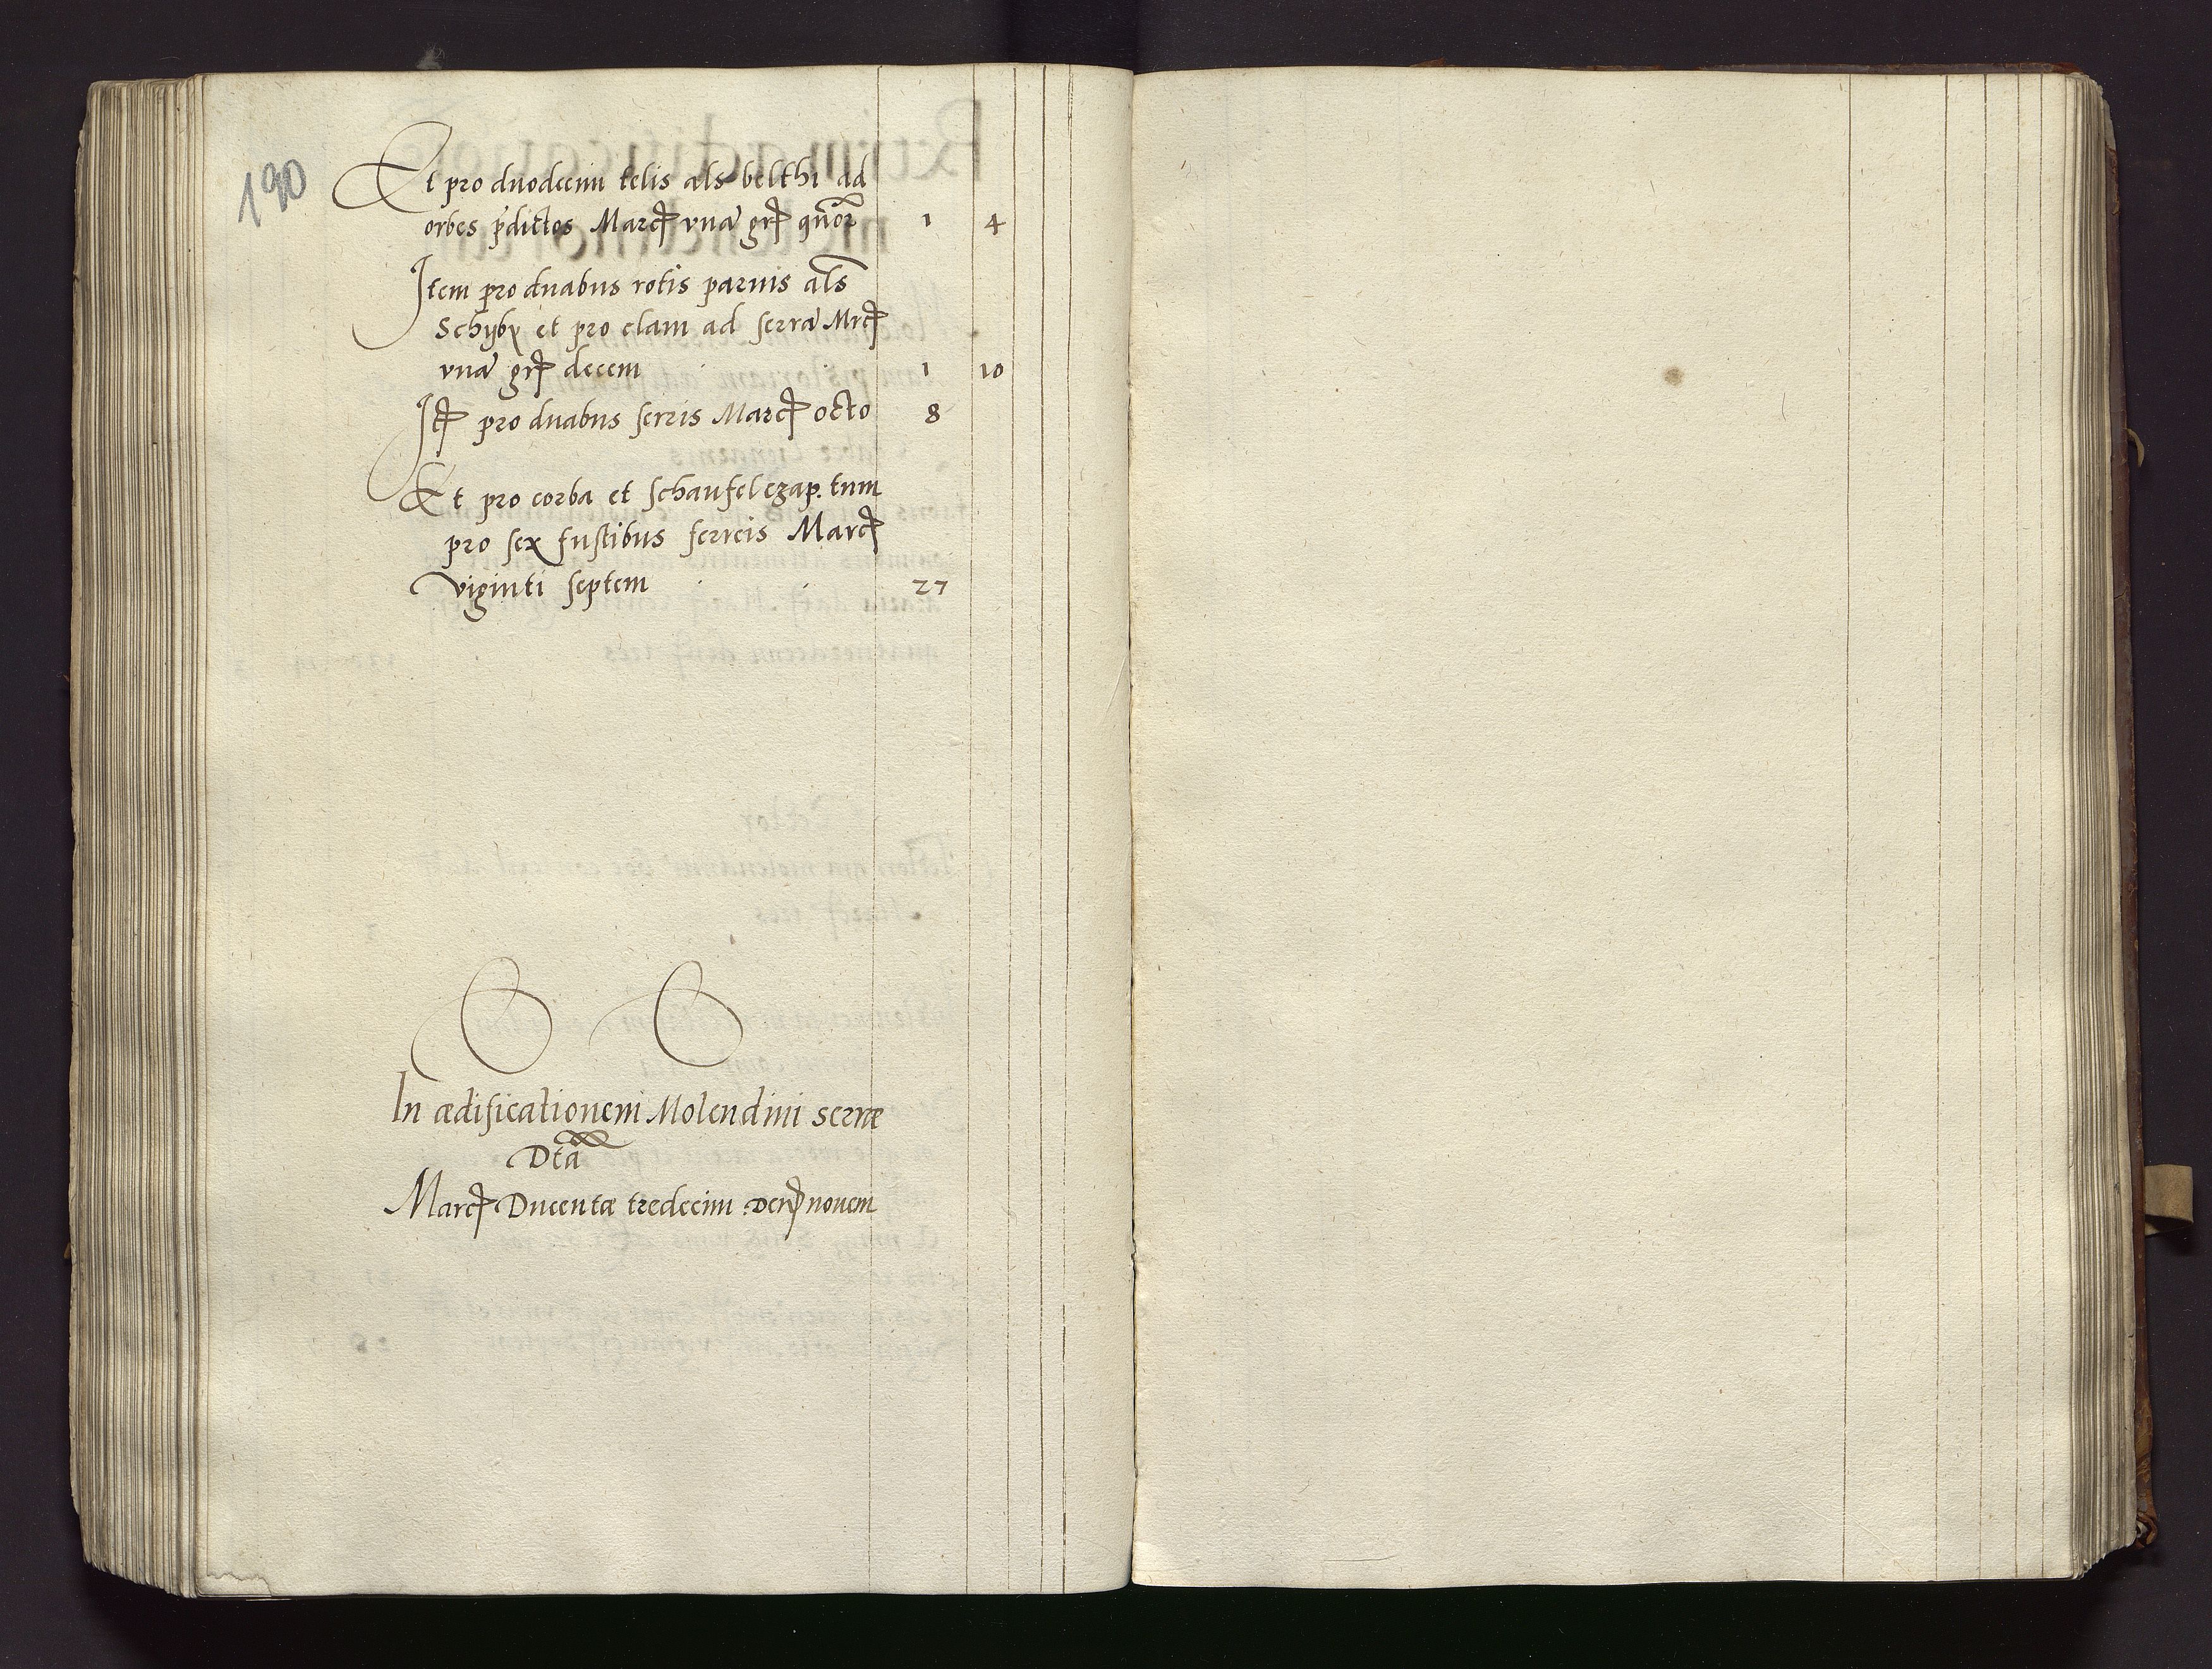 190
Et pro duodecim telis als belthi ad
orbes pdictos Marcȹ vnā grȹ qũor 1 4
Item pro duabus rotis paruis als
Schyby et pro clam ad serrā Mrcȹ
vnā grȹ decem 1 10
Itȹ pro duabus serris Marcȹ octo 8
Et pro corba et schaufel czap. tum
pro sex fustibus ferreis Marcȹ
viginti septem 27
In ædificationem Molendini serræ
Dtā
Marcȹ Ducentæ tredecim Denȹ nouem